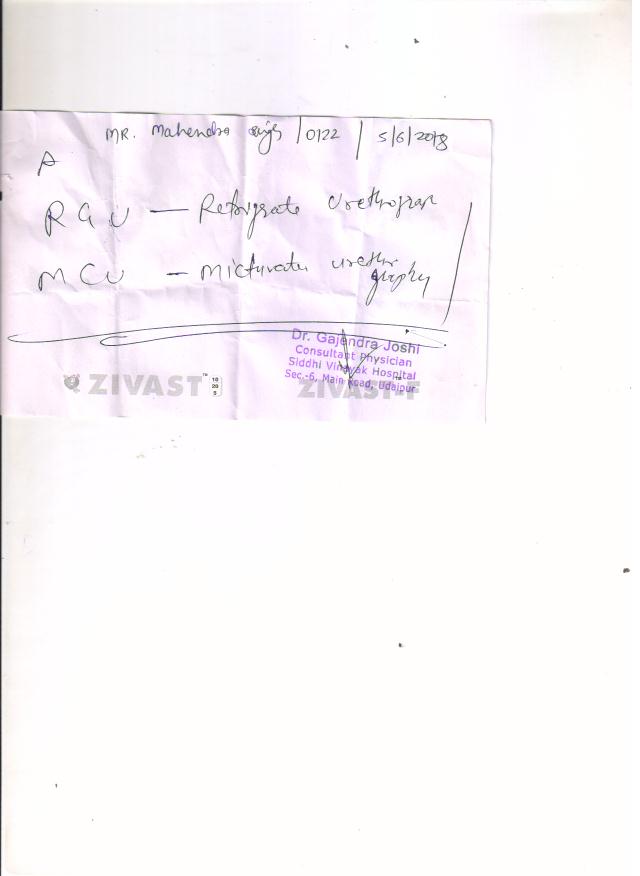 MR. Mahendra singh /0122 / 5/6/2018
A
RGU — Retrigrate Urethogram
MCU — Micturates urethro
graphy
Dr. Gajendra Joshi
Consultant Physician
Siddhi Vinayak Hospital
Sec.-6, Main Road, Udaipur
ZIVAST™ 10 20 5
ZIVAST™-F